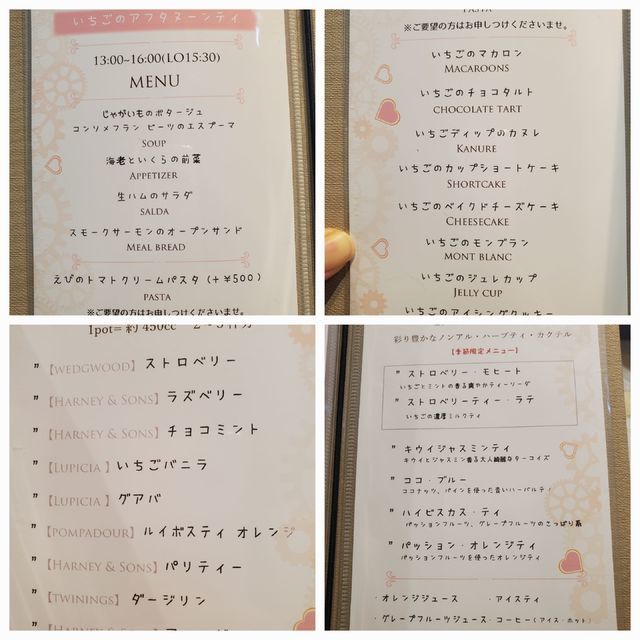 いちごのアフタヌーンティ
13:00~16:00(LO15:30)
MENU
じゃがいものポタージュ
コンソメフラン ビーツのエスプーマ
SOUP
海老といくらの前菜
APPETIZER
生ハムのサラダ
SALDA
スモークサーモンのオープンサンド
MEAL BREAD
えびのトマトクリームパスタ (+¥500)
PASTA
※ご要望の方はお申しつけくださいませ。
PASTA
※ご要望の方はお申しつけくださいませ。
いちごのマカロン
MACAROONS
いちごのチョコタルト
CHOCOLATE TART
いちごディップのカヌレ
KANURE
いちごのカップショートケーキ
SHORTCAKE
いちごのベイクドチーズケーキ
CHEESECAKE
いちごのモンブラン
MONT BLANC
いちごのジュレカップ
JELLY CUP
いちごのアイシングクッキー
1pot= 約 450cc 2~3杯分
” 【WEDGWOOD】 ストロベリー
” 【HARNEY & SONS】 ラズベリー
” 【HARNEY & SONS】 チョコミント
” 【LUPICIA 】 いちごバニラ
” 【LUPICIA 】 グアバ
” 【POMPADOUR】 ルイボスティ オレンジ
” 【HARNEY & SONS】 パリティー
” 【TWININGS】 ダージリン
” 【HARNEY & SONS】
彩り豊かなノンアル・ハーブティ・カクテル
【季節限定メニュー】
” ストロベリー・モヒート
いちごとミントの香る爽やかティーソーダ
” ストロベリーティー・ラテ
いちごの濃厚ミルクティ
” キウイジャスミンティ
キウイとジャスミン香る大人綺麗なターコイズ
” ココ・ブルー
ココナッツ、パインを使った青いハーバルティ
” ハイビスカス・ティ
パッションフルーツ、グレープフルーツのさっぱり系
” パッション・オレンジティ
パッションフルーツを使ったオレンジティ
・オレンジジュース ・アイスティ
・グレープフルーツジュース・コーヒー(アイス・ホット)